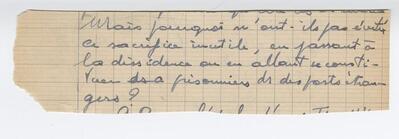 Mais pourquoi n'ont-ils pas évité
ce sacrifice inutile, en passant à
la dissidence ou en allant se consti-
tuer prisonniers ds des ports étran-
gers ?